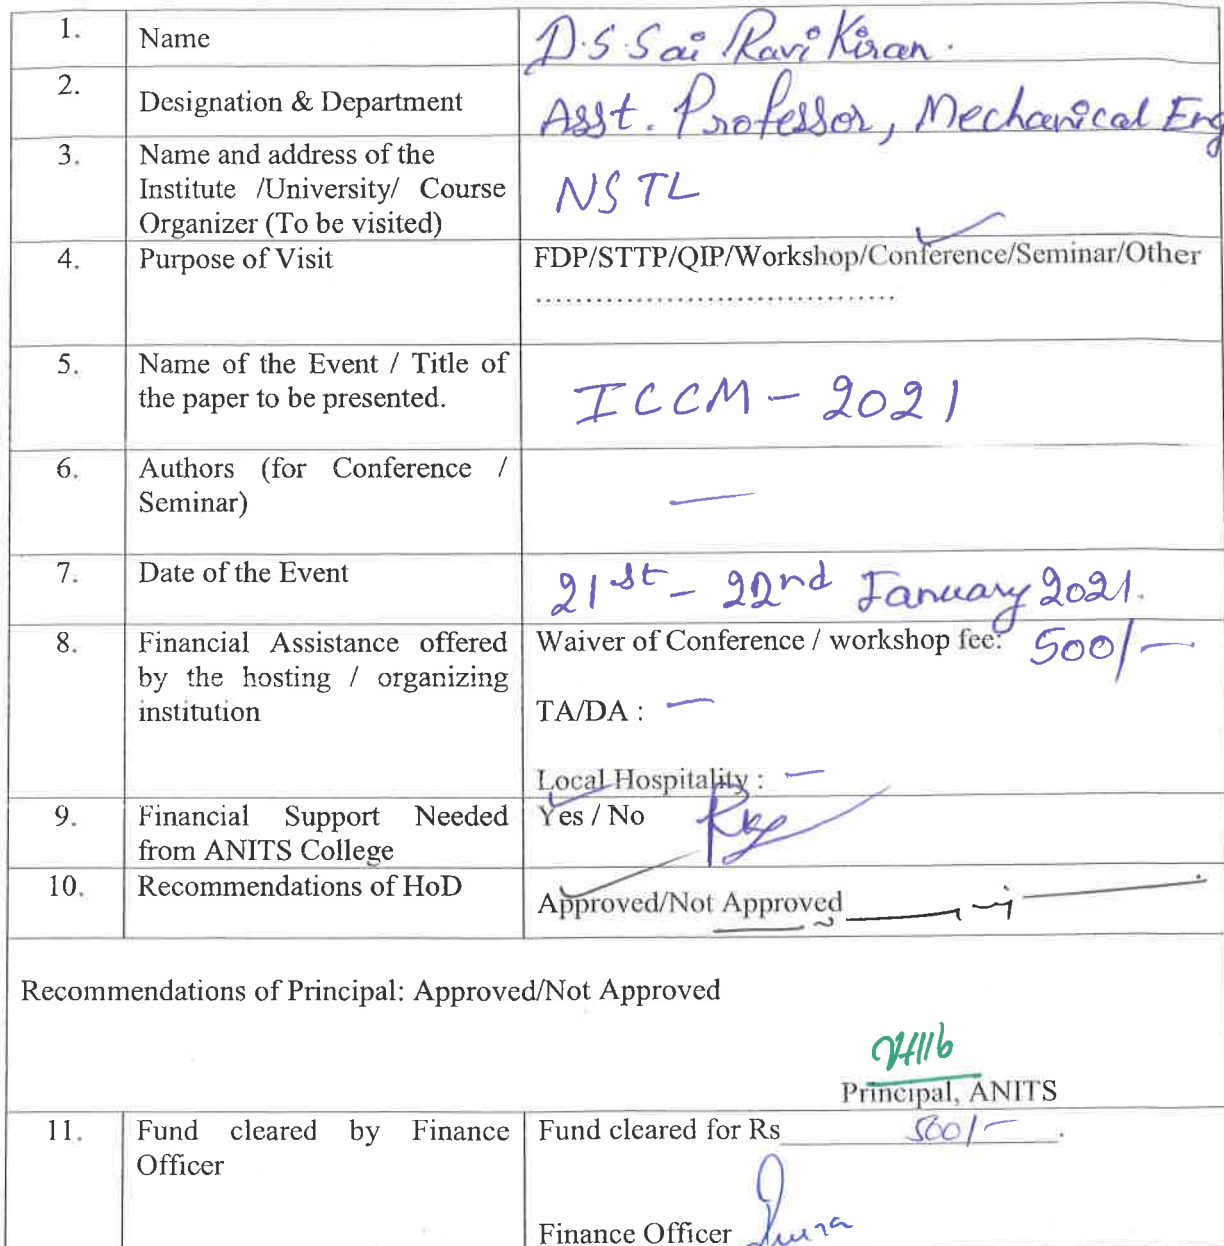 1. Name D.S.Sai Ravi Kiran.
2. Designation & Department Asst. Professor, Mechanical Eng
3. Name and address of the
Institute /University/ Course
Organizer (To be visited)
NSTL
4. Purpose of Visit FDP/STTP/QIP/Workshop/Conference/Seminar/Other
....................................
5. Name of the Event / Title of
the paper to be presented.
ICCM - 2021
6. Authors (for Conference /
Seminar)
—
7. Date of the Event 21st - 22nd January 2021.
8. Financial Assistance offered
by the hosting / organizing
institution
Waiver of Conference / workshop fee: 500/-
TA/DA : —
Local Hospitality : —
9. Financial Support Needed
from ANITS College
Yes / No
10. Recommendations of HoD Approved/Not Approved
Recommendations of Principal: Approved/Not Approved
Principal, ANITS
11. Fund cleared by Finance
Officer
Fund cleared for Rs 500/- .
Finance Officer